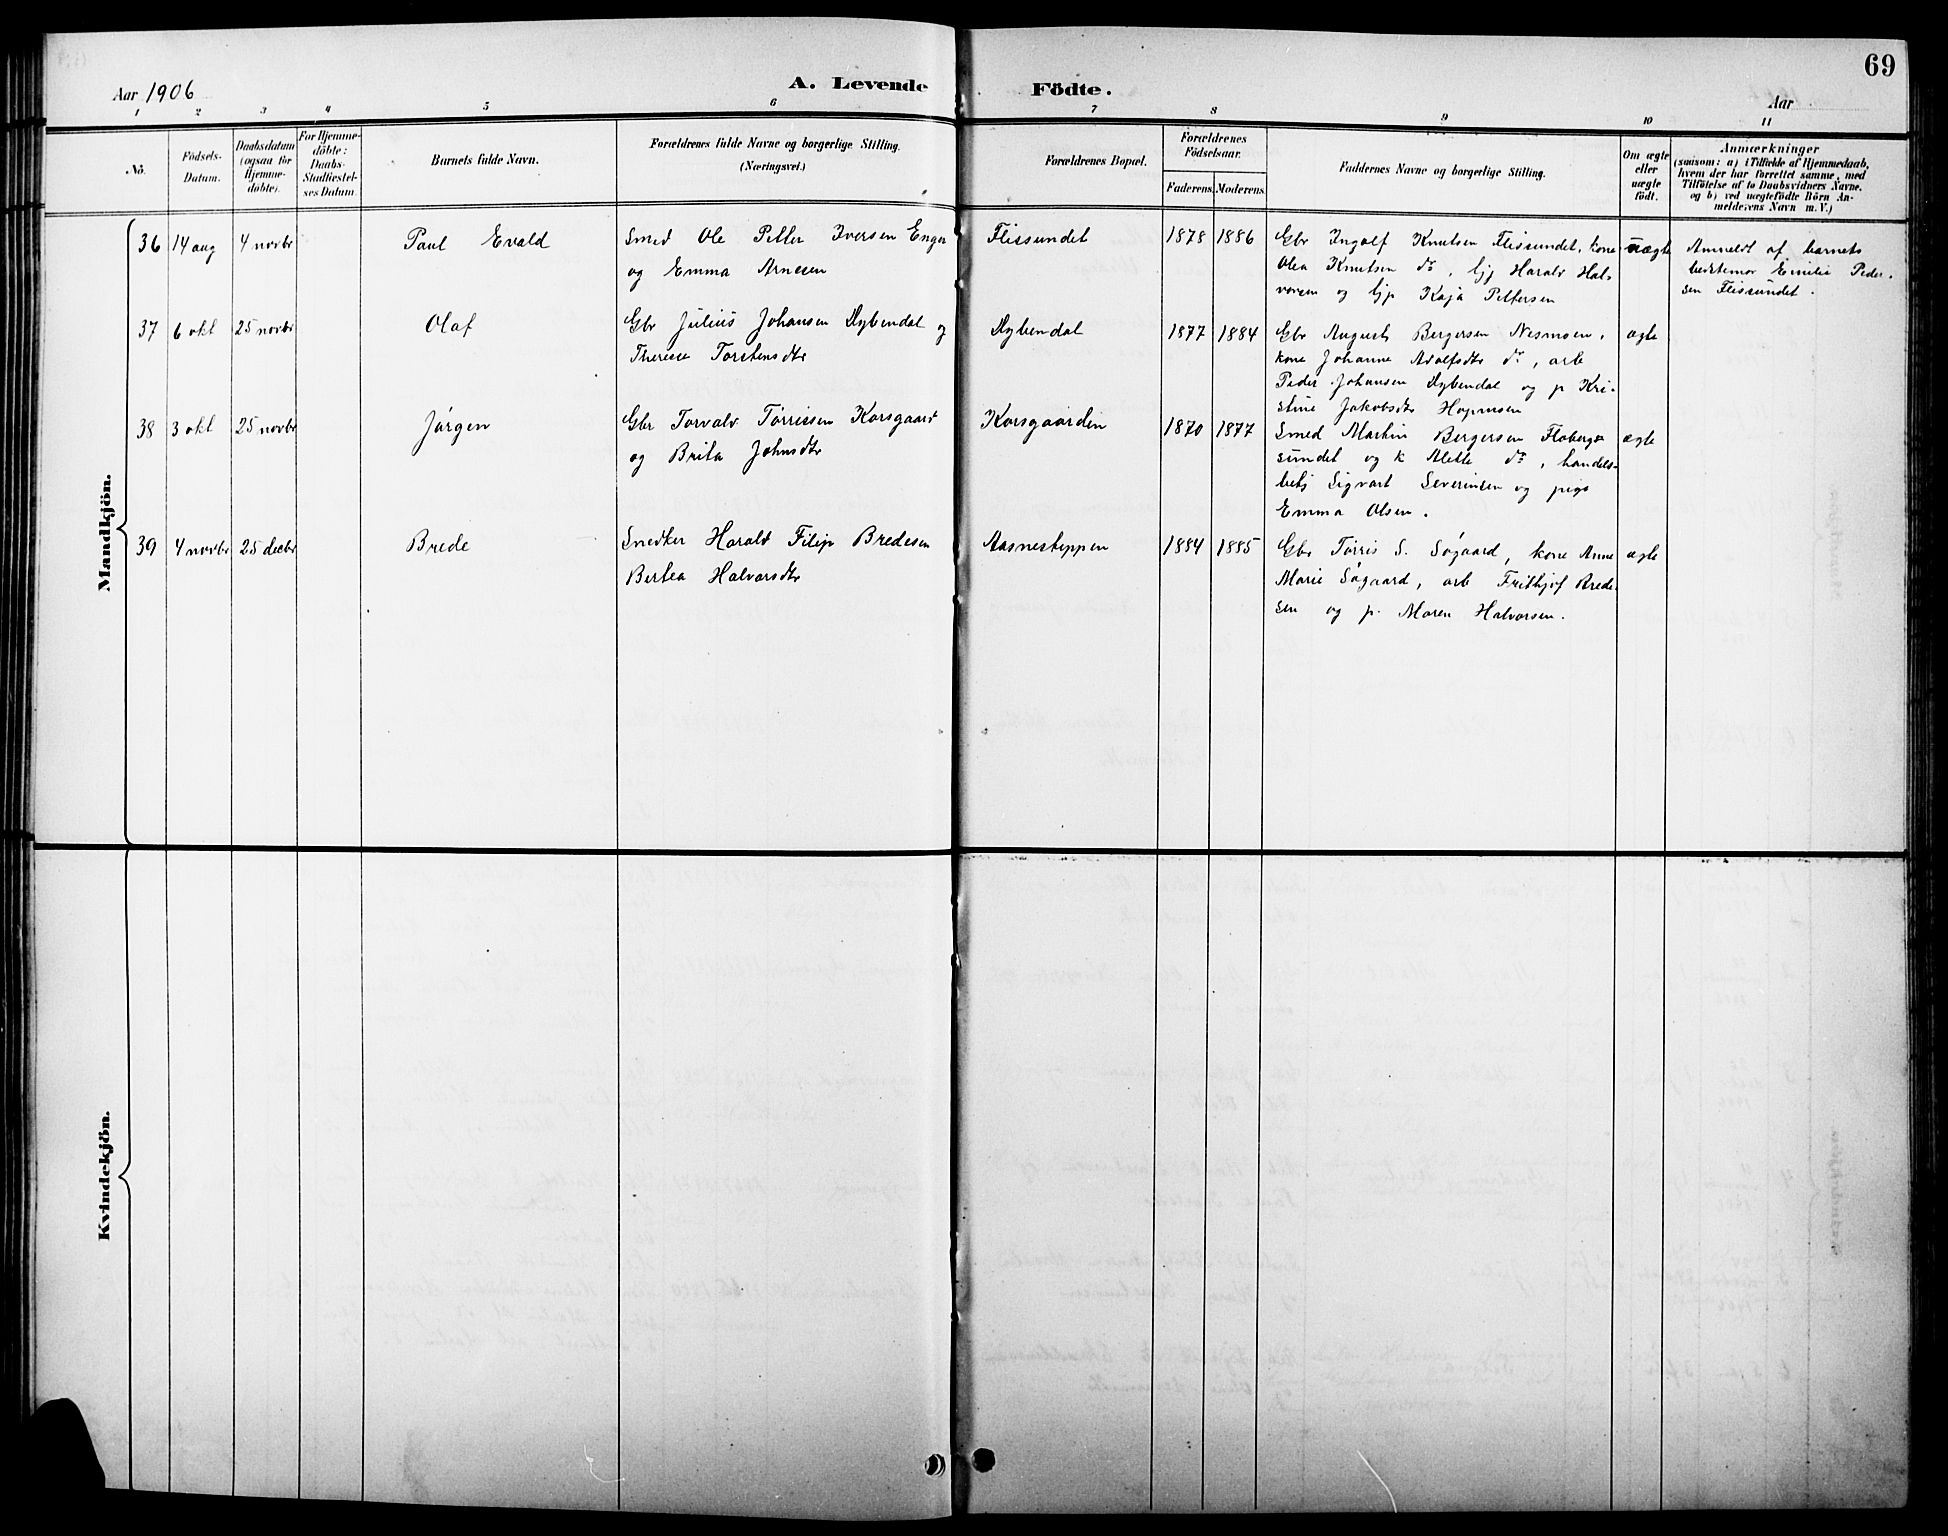 69
Aar 1906
A. Levende
Födte.
Aar
1 2 3 4 5 6 7 8 9 10 11
No.
Födsels-
Datum.
Daabsdatum
(ogsaa for
Hjemme-
döbte).
For Hjemme-
döbte:
Daabs-
Stadfæstel-
ses Datum.
Barnets fulde Navn.
Forældrenes fulde Navne og borgerlige Stilling.
(Næringsvei.)
Forældrenes Bopæl.
Forældrenes
Födselsaar.
Faderens. Moderens.
Faddernes Navne og borgerlige Stilling.
Om ægte
eller
uægte
födt.
Anmærkninger
(saasom: a) i Tilfælde af Hjemmedaab,
hvem der har forrettet samme, med
Tilföielse af to Daabsvidners Navne,
og b) ved uægtefödte Börn An-
melderens Navn m. V.)
Mandkjön.
36 14 aug 4 novbr Paul Evald
Smed Ole Petter Iversen Enger
og Emma Arnesen
Flissundet 1878 1886
Gbr Ingolf Knutsen Flissundet, kone
Olea Knutsen do, lj Harald Hal-
vorsen og lj Kaja Pettersen
uægte
Anmeldt af barnets
bedstemor Emilie Peder-
sen Flissundet.
37 6 okt 25 novbr Olaf
Gbr Julius Johansen Dybendal og
Therese Torstensdtr
Dybendal 1877 1884
Gbr August Bergersen Nesmoen,
kone Johanne Adolfsdtr do, arb
Peder Johansen Dybendal og p Kri-
stine Jakobsdtr
ægte
38 3 okt 25 novbr Jørgen
Gbr Torvald Tørrissen Korsgaard
og Brita Johnsdtr
Korsgaarden 1870 1877
Smed Martin Bergersen Floberg-
sundet og k Alette do, handels-
betj Sigvart Severinsen og pige
Emma Olsen.
ægte
39 4 novbr 25 decbr Brede
Snedker Harald Filip Bredesen
Bertea Halvorsdtr
Aasnesteppen 1884 1885
Gbr Tørris S. Søgaard, kone Anne
Marie Søgaard, arb Frithjof Brede-
sen og p. Maren Halvorsen.
ægte
Kvindekjön.